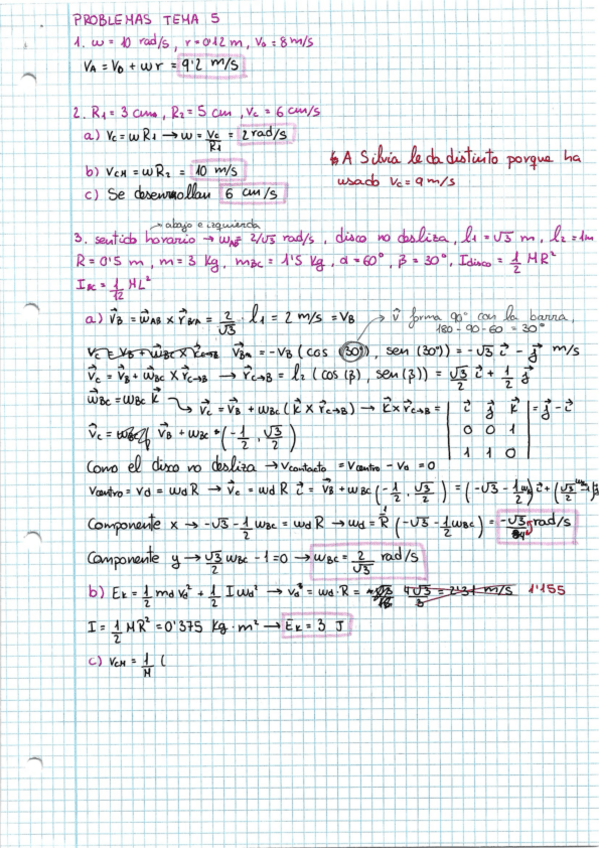 PROBLEMAS TEMA 5
1. ω = 10 rad/s, r = 0'12 m, V₀ = 8 m/s
V_A = V_0 + ωr = 9'2 m/s
2. R₁ = 3 cm, R₂ = 5 cm, V_c = 6 cm/s
a) V_c = ωR₁ → ω = V_c/R₁ = 2 rad/s
b) V_CM = ωR₂ = 10 m/s
c) Se desenrrollan 6 cm/s
↳ A Silvia le da distinto porque ha
usado V_c = 9 m/s
→ abajo e izquierda
3. sentido horario → ω_AB = 2/√3 rad/s, disco no desliza, l₁ = √3 m, l₂ = 1m
R = 0'5 m, m = 3 kg, m_BC = 1'5 kg, α = 60°, β = 30°, I_disco = 1/2 MR²
I_BC = 1/12 ML²
a) v⃗_B = ω⃗_AB × r⃗_B/A = 2/√3 · l₁ = 2 m/s = V_B
v⃗ forma 90° con la barra,
180 - 90 - 60 = 30°
V_c = V_B + ω_BC × r_C→B v⃗_B = -V_B (cos (30°), sen (30°)) = -√3 i⃗ - j⃗ m/s
v⃗_c = v⃗_B + ω⃗_BC × r⃗_C→B → r⃗_C→B = l₂ (cos (β), sen (β)) = √3/2 i⃗ + 1/2 j⃗
ω⃗_BC = ω_BC k⃗ → v⃗_c = v⃗_B + ω_BC (k⃗ × r⃗_C→B) → k⃗ × r⃗_C→B = | i⃗ j⃗ k⃗ | 0 0 1 | 1 1 0 | = j⃗ - i⃗
v⃗_c = v⃗_B + ω_BC · (-1/2, √3/2)
Como el disco no desliza → V_contacto = V_centro - V_d = 0
V_centro = V_d = ω_d R → v⃗_c = ω_d R i⃗ = v⃗_B + ω_BC (-1/2, √3/2) = (-√3 - 1/2 ω_BC) i⃗ + (√3/2 ω_BC - 1) j⃗
Componente x → -√3 - 1/2 ω_BC = ω_d R → ω_d = 1/R (-√3 - 1/2 ω_BC) = -√3 rad/s
Componente y → √3/2 ω_BC - 1 = 0 → ω_BC = 2/√3 rad/s
b) E_k = 1/2 m_d V_d² + 1/2 I ω_d² → V_d = ω_d · R = 4√3/3 = 2'31 m/s 1'155
I = 1/2 MR² = 0'375 kg · m² → E_k = 3 J
c) V_CM = 1/M (